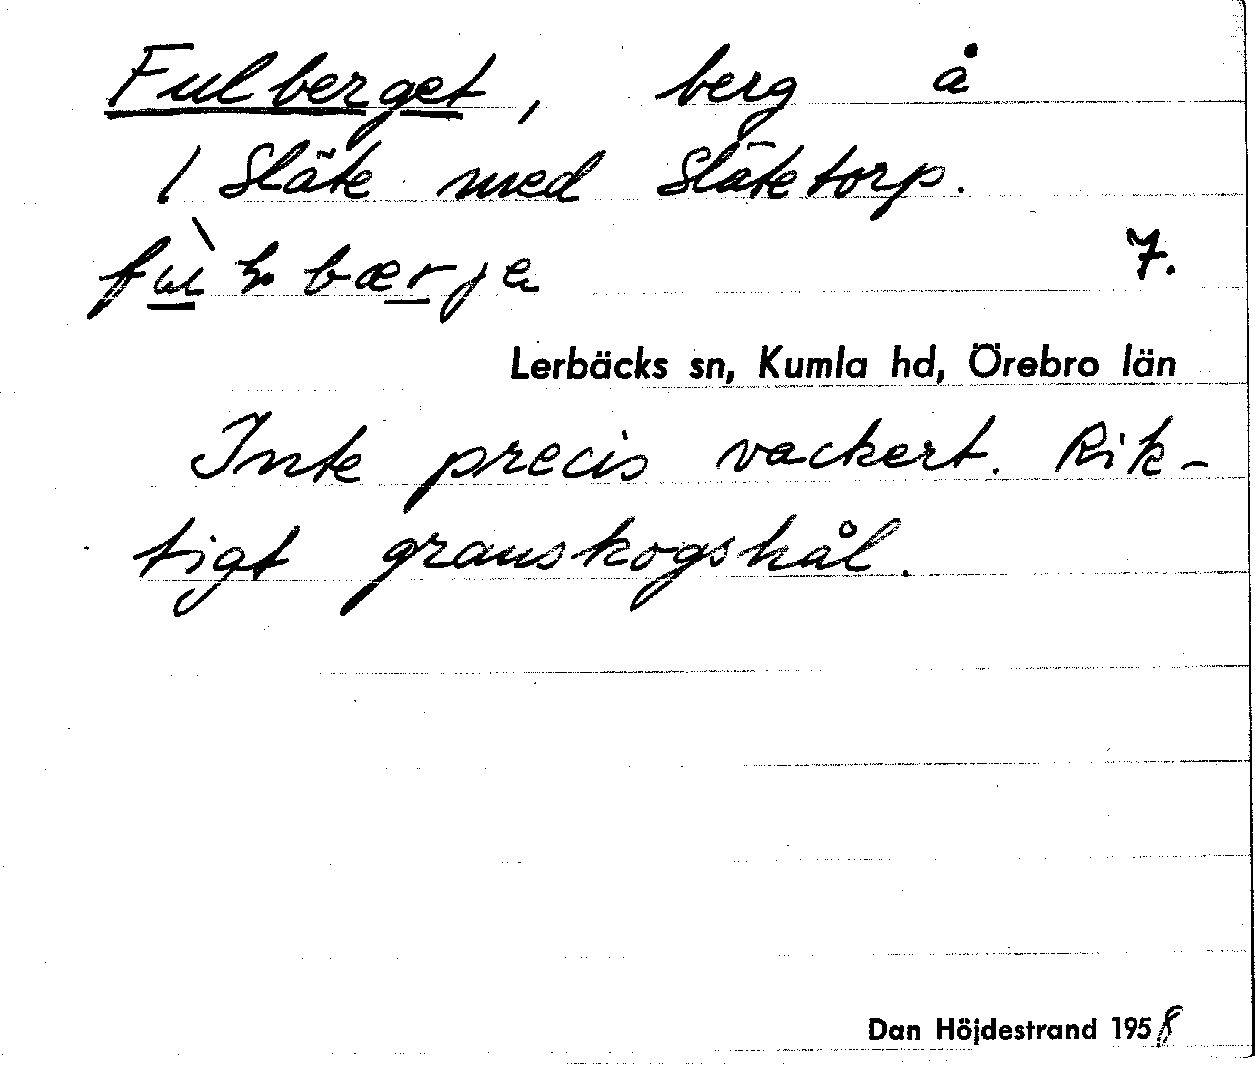 Fulberget, berg å
1 Släte med Slätetorp.
fùlbærje 7.
Lerbäcks sn, Kumla hd, Örebro län
Inte precis vackert. Rik-
tigt granskogshål.
Dan Höjdestrand 1958